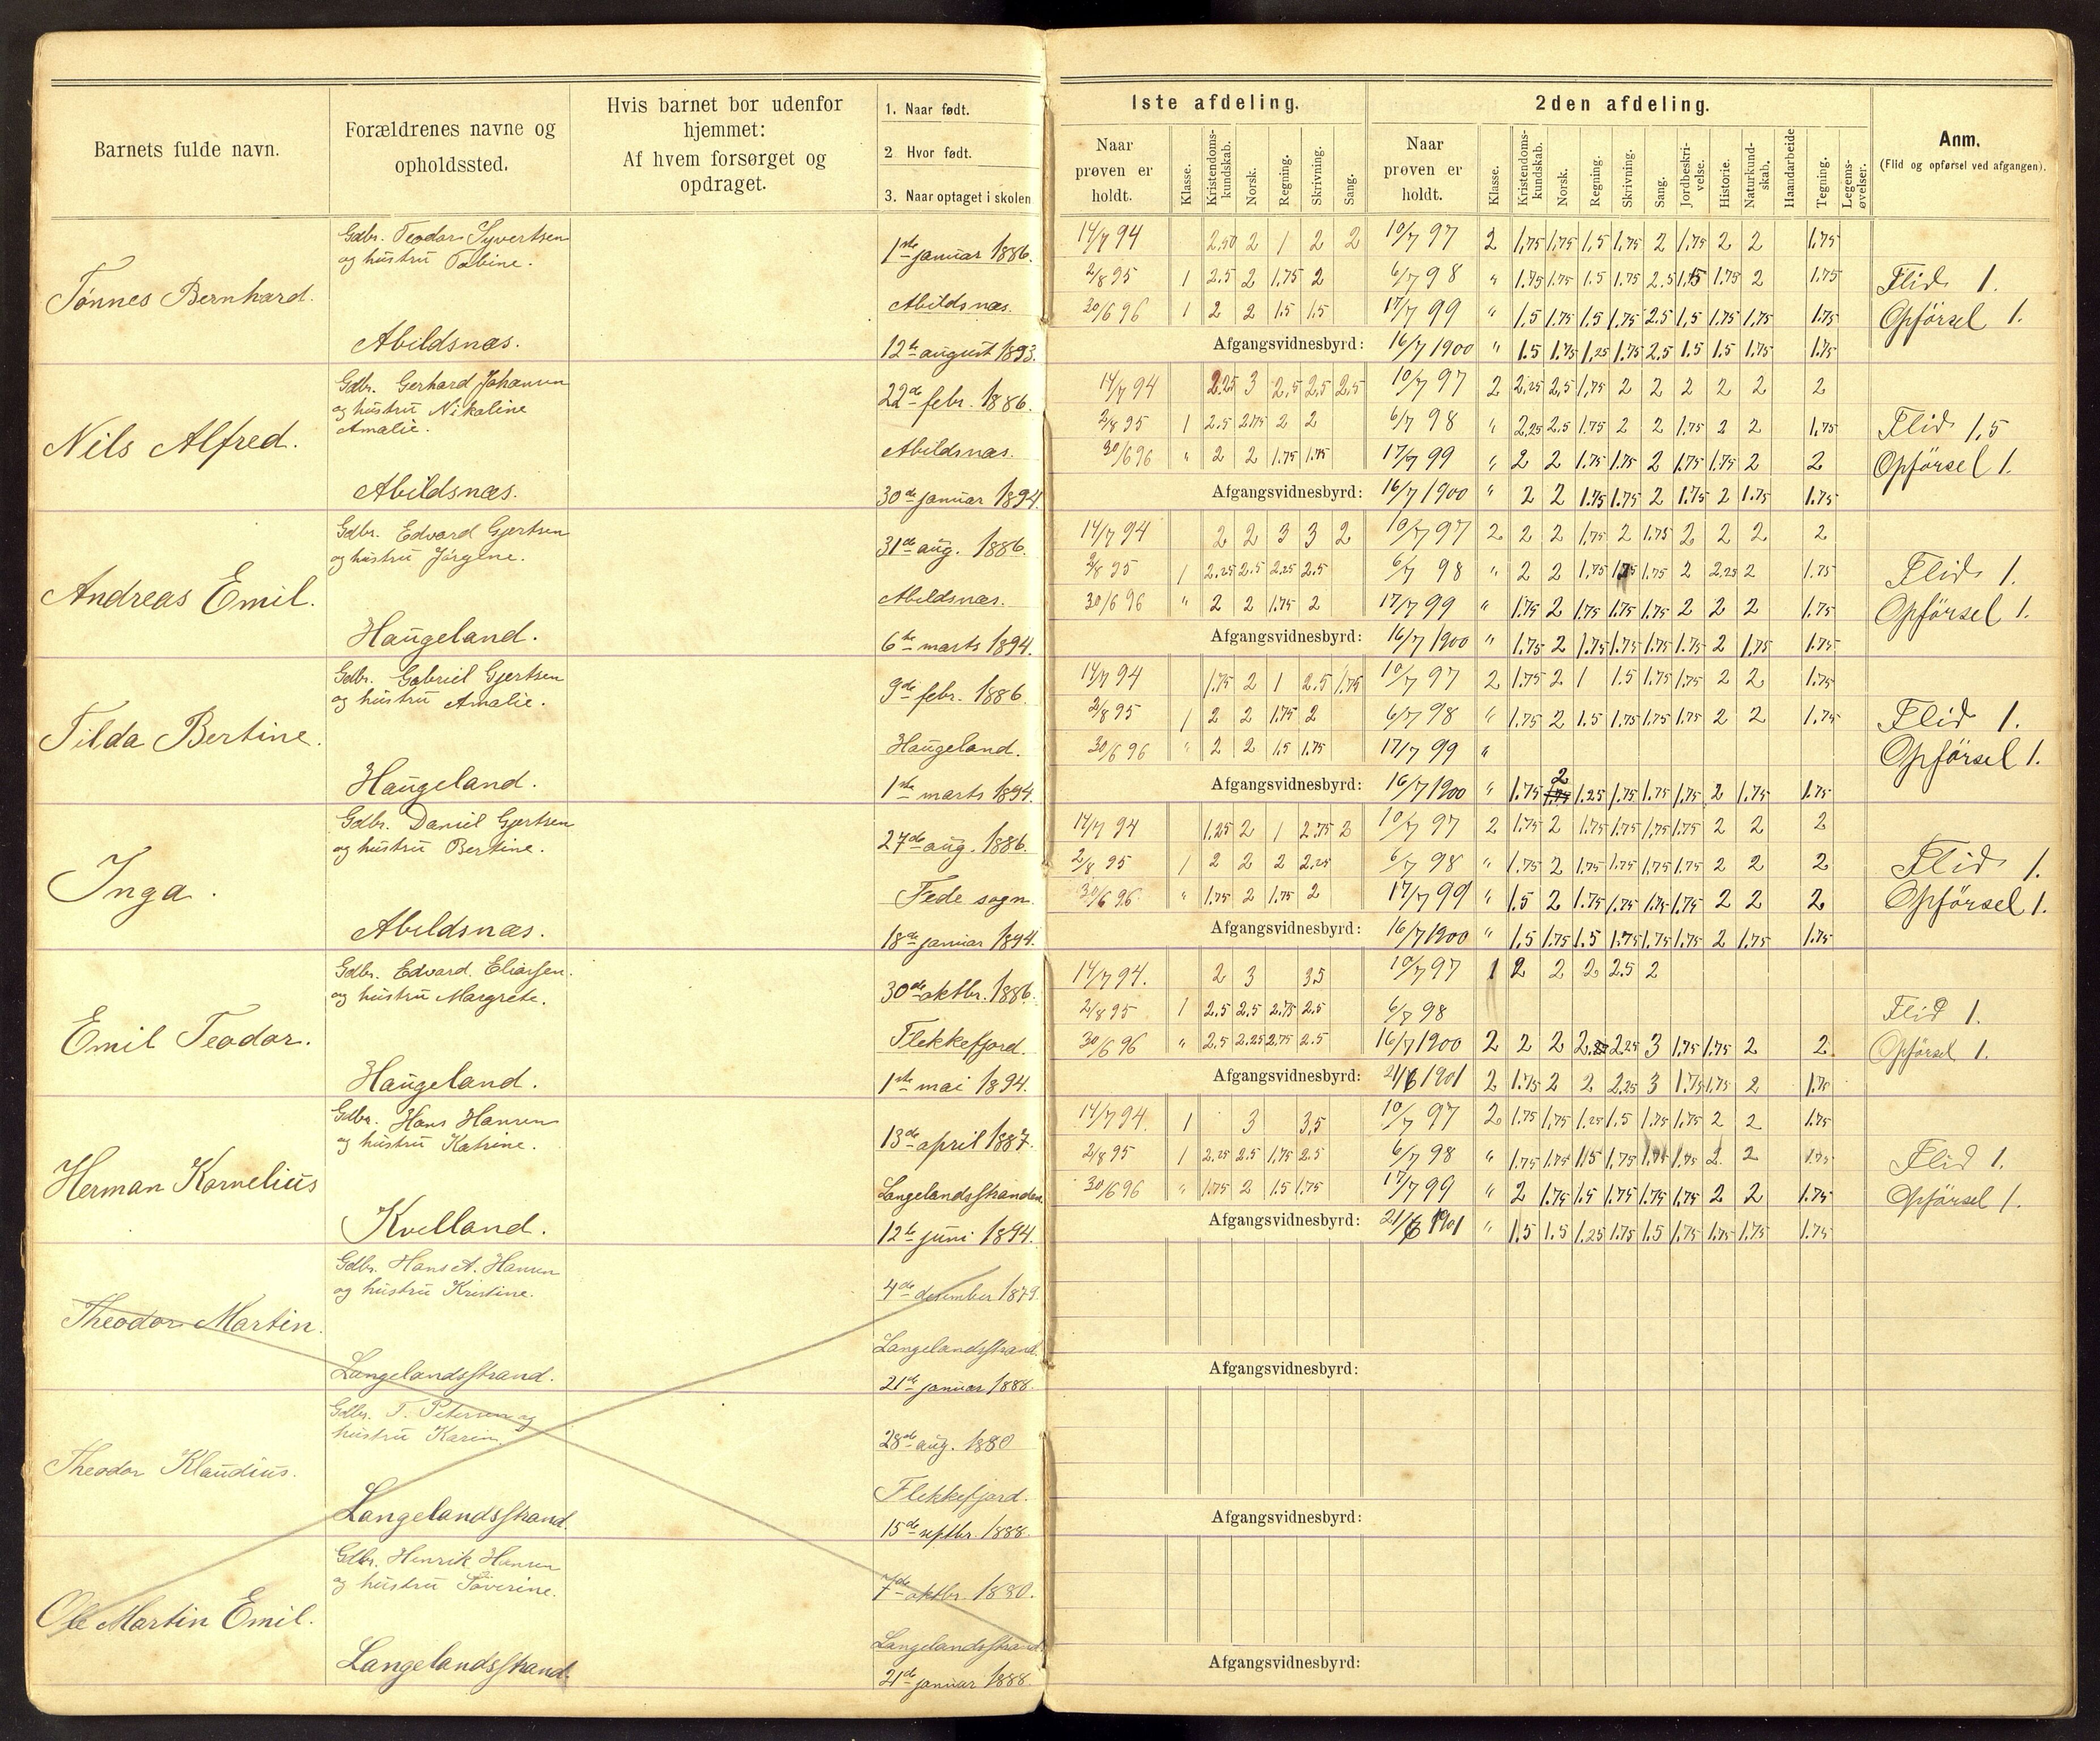 Barnets fulde navn.
Forældrenes navne og
opholdssted.
Hvis barnet bor udenfor
hjemmet:
Af hvem forsørget og
opdraget.
1. Naar født.
2 Hvor født.
3. Naar optaget i skolen
1ste afdeling.
Naar
prøven er
holdt.
Klasse.
Kristendoms-
kundskab.
Norsk.
Regning.
Skrivning.
Sang.
2den afdeling.
Naar
prøven er
holdt.
Klasse.
Kristendoms-
kundskab.
Norsk.
Regning.
Skrivning.
Sang.
Jordbeskri-
velse.
Historie.
Naturkund-
skab.
Haandarbeide
Tegning.
Legems-
øvelser.
Anm.
(Flid og opførsel ved afgangen).
Tønnes Bernhard.
Gdbr. Teodor Syvertsen
og hustru Tobine.
Abildsnæs.
1ste januar 1886.
Abildsnæs.
12te august 1893.
14/7 94 2.50 2 1 2 2 10/7 97 2 1,75 1,75 1.5 1.75 2 1,75 2 2 1.75
2/8 95 1 2.5 2 1.75 2 6/7 98 " 1.75 1.75 1.5 1.75 2.5 1.5 1.75 2 1.75
30/6 96 1 2 2 1.5 1.5 17/7 99 " 1.5 1.75 1.5 1.75 2.5 1.5 1.75 1.75 1.75
Afgangsvidnesbyrd: 16/7 1900 " 1.5 1.75 1,25 1.75 2.5 1.5 1.5 1.75 1.75
Flid 1.
Opførsel 1.
Nils Alfred.
Gdbr. Gerhard Johansen
og hustru Nikoline
Amalie.
Abildsnæs.
22de febr. 1886.
Abildsnæs.
30de januar 1894.
14/7 94 2.25 3 2,5 2,5 2,5 10/7 97 2 2,25 2,5 1,75 2 2 2 2 2 2
2/8 95 1 2.5 2.75 2 2 6/7 98 " 2,25 2.5 1.75 2 2 1.75 2 2 1.75
30/6 96 " 2 2 1.75 1.75 17/7 99 " 2 2 1.75 1.75 2 1.75 1.75 2 2
Afgangsvidnesbyrd: 16/7 1900 " 2 2 1.75 1.75 2 1.75 2 1.75 1.75
Flid 1,5
Opførsel 1.
Andreas Emil.
Gdbr. Edvard Gjertsen
og hustru Jørgine.
Haugeland.
31te aug. 1886.
Abildsnæs.
6te marts 1894.
14/7 94 2 2 3 3 2 10/7 97 2 2 2 1.75 2 1.75 2 2 2 2
2/8 95 1 2.25 2.5 2.25 2.5 6/7 98 " 2 2 1.75 1.75 1.75 2 2.25 2 1.75
30/6 96 " 2 2 1.75 2 17/7 99 " 1.75 2 1.75 1.75 1.75 2 2 2 1.75
Afgangsvidnesbyrd: 16/7 1900 " 1.75 2 1.75 1.75 1.75 1.75 2 1.75 1.75
Flid 1.
Opførsel 1.
Tilda Bertine.
Gdbr. Gabriel Gjertsen
og hustru Amalie.
Haugeland.
9de febr. 1886
Haugeland.
1ste marts 1894.
14/7 94 1.75 2 1 2.5 1.75 10/7 97 2 1.75 2 1 1.5 1.75 1.75 2 2 1.75
2/8 95 1 2 2 1.75 2 6/7 98 " 1.75 2 1.5 1.75 1.75 1.75 2 2 1.75
30/6 96 " 2 2 1.5 1.75 17/7 99 "
Afgangsvidnesbyrd: 16/7 1900 " 1.75 2 1.25 1.75 1.75 1.75 2 1.75 1.75
Flid 1.
Opførsel 1.
Inga.
Gdbr. Daniel Gjertsen
og hustru Bertine.
Abildsnæs.
27de aug. 1886.
Fede sogn.
18de januar 1894.
14/7 94 1.25 2 1 2.75 2 10/7 97 2 1.75 2 1.75 1.75 1.75 1.75 2 2 2
2/8 95 1 2 2 2 2.25 6/7 98 " 1.75 2 1.75 1.75 1.75 1.75 2 2 2
30/6 96 " 1.75 2 1.75 2 17/7 99 " 1.5 2 1.75 1.75 1.75 1.75 2 2 2
Afgangsvidnesbyrd: 16/7 1900 " 1.5 1.75 1.5 1.75 1.75 1.75 2 1.75 1.75
Flid 1.
Opførsel 1.
Emil Teodor.
Gdbr. Edvard Eliassen.
og hustru Margrete.
Haugeland.
30de oktbr. 1886.
Flekkefjord.
1ste mai 1894.
14/7 94. 2 3 3.5 10/7 97 1 2 2 2 2.5 2
2/8 95 1 2.5 2.5 2.75 2.5 6/7 98
30/6 96 " 2.5 2.25 2.75 2.5 16/7 1900 2 2 2 2 2.25 3 1.75 1.75 2 2
Afgangsvidnesbyrd: 21/6 1901 2 1.75 2 2 2.25 3 1.75 1.75 2 1.75
Flid 1.
Opførsel 1.
Herman Kornelius
Gdbr. Hans Hansen
og hustru Katrine.
Kvelland.
13de april 1887.
Langelandsstranden
12te juni 1894.
14/7 94. 1 3 3.5 10/7 97 2 1.75 1.75 1.25 1.5 1.75 1.75 2 2 1.75
2/8 95 1 2.25 2.5 1.75 2.5 6/7 98 " 1.75 1.75 1.5 1.75 1.75 1.75 2 2 1.75
30/6 96 " 1.75 2 1.5 1.75 17/7 99 " 2 1.75 1.5 1.75 1.75 1.75 2 2 1.75
Afgangsvidnesbyrd: 21/6 1901 " 1.5 1.5 1.25 1.75 1.5 1.75 1.75 1.75 1.75
Flid 1.
Opførsel 1.
Theodor Martin.
Gdbr. Hans A. Hansen
og hustru Kristine.
Langelandsstrand.
4de desember 1879.
Langelandsstrand.
21de januar 1888.
Afgangsvidnesbyrd:
Theodor Klaudius.
Gdbr. T. Petersen og
hustru Karen.
Langelandsstrand.
28de aug. 1880
Flekkefjord.
15de septbr. 1888.
Afgangsvidnesbyrd:
Ole Martin Emil.
Gdbr. Henrik Hansen
og hustru Søverine.
Langelandsstrand.
7de oktbr. 1880.
Langelandsstrand.
21de januar 1888.
Afgangsvidnesbyrd: